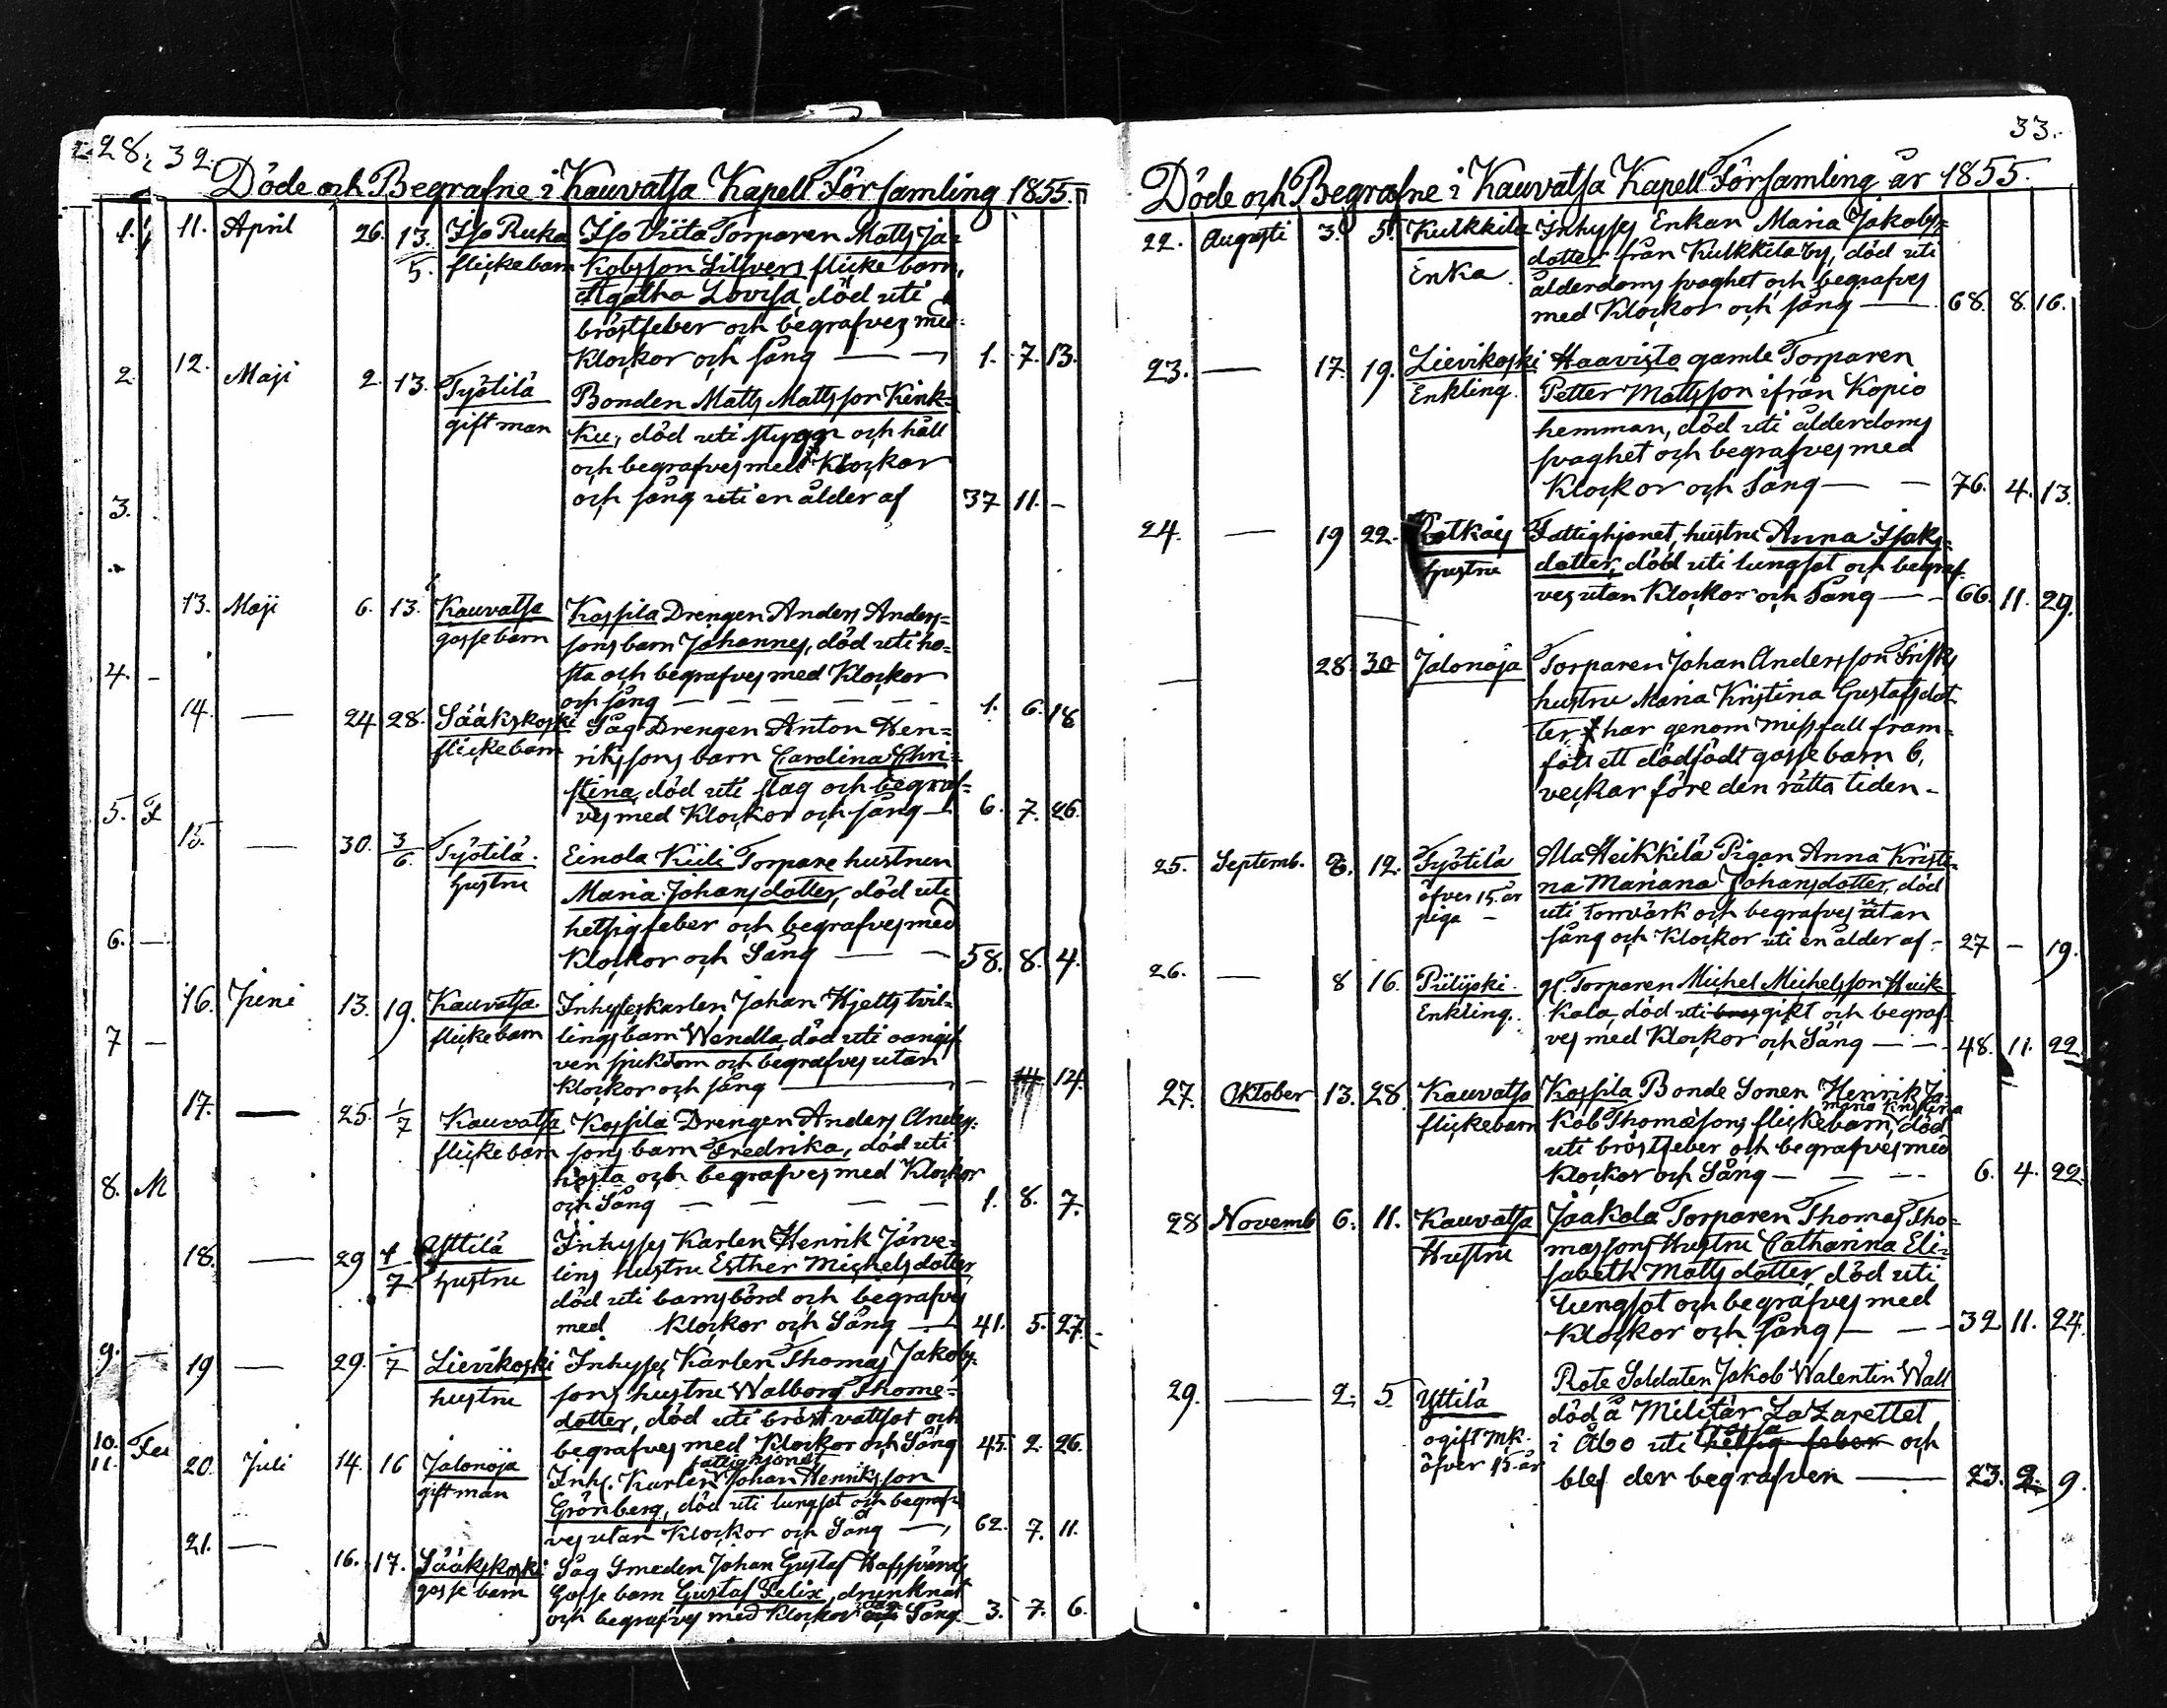 28. 32.
Döde och Begrafne i Kauvatsa Kapell Församling 1855.
11. April 26. 13/5. Iso Ruka Iso Viita Torparen Matts Ja=
flickebarn kobsson Silfvers flicke barn,
Agatha Lovisa, död uti
bröstfeber och begrafves med
Klockor och sång — — 1. 7. 13.
12. Maji 2. 13. Työtilä Bonden Matts Mattsson Kink=
gift man ku, död uti stygg och håll
och begrafves med Klockor
och sång uti en ålder af 37 11. -
13. Maji 6. 13. Kauvatsa Kospila Drengen Anders Anders=
gossebarn sons barn Johannes, död uti ho=
sta och begrafves med Klockor
och sång — — — 1. 6. 18
14. — 24 28. Sääkskoski Såg Drengen Anton Hen=
flickebarn rikssons barn Carolina Chri=
stina, död uti slag och begraf=
ves med Klockor och sång — 6. 7. 26.
15. — 30. 3/6. Työtilä. Einola Kiili Torpare hustrun
hustru Maria Johansdotter, död uti
hetsig feber och begrafves med
Klockor och Sång — — 58. 8. 4.
16. Juni 13. 19. Kauvatsa Inhyseskarlen Johan Hjelts tvil=
flickebarn lings barn Wendla, död uti oangif
ven sjukdom och begrafves utan
klockor och sång — - 14.
17. — 25. 1/7 Kauvatsa Kospila Drengen Anders Anders=
flickebarn sons barn Fredrika, död uti
hosta och begrafves med Klockor
och Sång — — — 1. 8. 7.
18. — 29 4/7 Yttilä Inhyses Karlen Henrik Järve=
hustru lins hustru Esther Michelsdotter,
död uti barnsbörd och begrafves
med Klockor och Sång — 41. 5. 27.
19 — 29. /7 Lievikoski Inhyses Karlen Thomas Jakobs=
hustru sons hustru Walborg Thome=
dotter, död uti bröstvattsot och
begrafves med Klockor och Sång 45. 2. 26.
fattighjonet
20. Juli 14. 16 Jalonoja Inh. Karlen Johan Henriksson
gift man Grönberg, död uti lungsot och begraf=
ves utan Klockor och Sång — 62. 7. 11.
21. — 16. 17. Sääkskoski Såg Smeden Johan Gustaf
gosse barn Gosse barn Gustaf Felix, drunknat
och begrafves med Klockor och Sång 3. 7. 6.
1.
2.
3.
4. -
5. F
6. —
7 —
8. M
9. —
10.
11.
33.
Döde och Begrafne i Kauvatsa Kapell Församling år 1855.
22. Augusti 3. 5. Kulkkila Inhyses Enkan Maria Jakobs=
Enka. dotter från Kulkkila by, död uti
ålderdoms svaghet och begrafves
med Klockor och sång — 68. 8. 16.
23. — 17. 19. Lievikoski Haavisto gamle Torparen
Enkling. Petter Mattsson ifrån Kopio
hemman, död uti ålderdoms
svaghet och begrafves med
Klockor och Sång — — 76. 4. 13.
24. — 19 22. Fattighjonet, hustru Anna Isaks=
hustru dotter, död uti lungsot och begraf=
ves utan Klockor och Sång — - 66. 11. 29.
— 28. 30 Jalonoja Torparen Johan Andersson Frisks
hustru Maria Kristina Gustafsdot
ter har genom missfall fram=
födt ett dödfödt gosse barn 6,
veckor före den rätta tiden -
25. Septemb. 8. 12. Työtilä Ala Heikkilä Pigan Anna Kristi=
öfver 15. år na Mariana Johansdotter, död
piga — uti tornvärk och begrafves utan
sång och Klockor uti en ålder af - 27 - 19.
26. — 8 16. Piilijoki. gl. Torparen Michel Michelsson
Enkling. kala, död uti gikt och begraf=
ves med Klockor och Sång — — 48. 11. 22.
27. Oktober 13. 28. Kauvatsa Kospila Bonde Sonen Henrik Ja=
Maria Kristina
flickebarn kob Thomæsons flickebarn, död
uti bröstfeber och begrafves med
Klockor och Sång — — — 6. 4. 22.
28 Novemb 6. 11. Kauvatsa Jaakola Torparen Thomas Tho=
Hustru massons Hustru Catharina Eli=
sabeth Matts dotter, död uti
lungsot och begrafves med
Klockor och sång — — 32 11. 24.
29. — 2. 5 Yttilä Rote Soldaten Jakob Walentin Wall
ogift mk. död å Militär Lazarettet
öfver 15. år i Åbo uti hetsig feber och
blef der begrafven — 23. 2. 9.